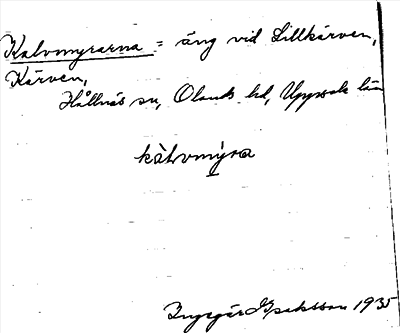 Kalvmyrarna = äng vid Lillkärven,
Kärven,
Hållnäs sn, Olands hd, Uppsala län
kàlvmýra
Ingegär Isaksson 1935